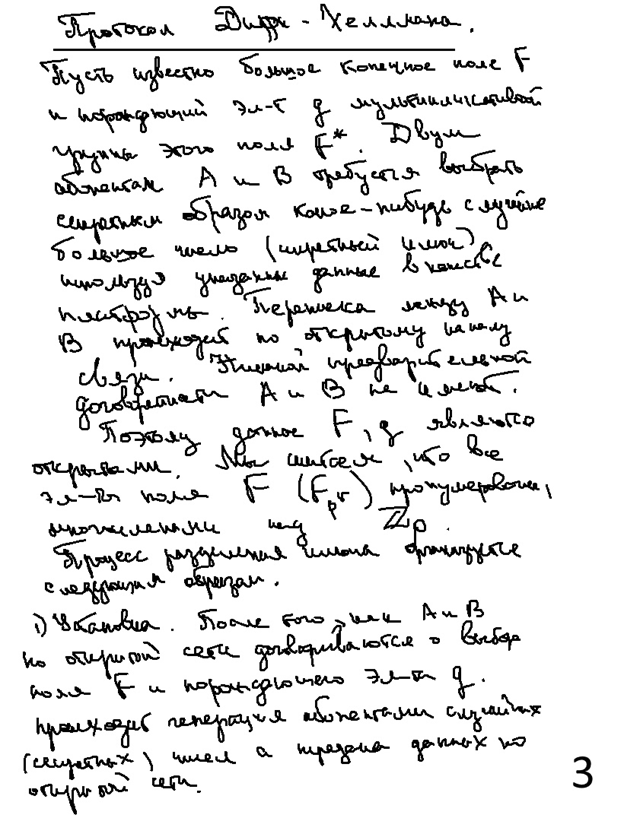 Протокол Диффи-Хеллмана.
Пусть известно большое конечное поле F
и порождающий эл-т g мультипликативной
группы этого поля F*. Двум
абонентам A и B требуется выбрать
секретным образом какое-нибудь случайное
большое число (секретный ключ),
используя указанные данные в качестве
платформы. Переписка между A и
B происходит по открытому каналу
связи. Никакой предварительной
договорённости A и B не имеют.
Поэтому данное F, g являются
открытыми. Мы считаем, что все
эл-ты поля F (F_pr) пронумерованы,
многочленами над ℤp.
Процесс разделения ключа организуется
следующим образом.
1) Установка. После того, как A и B
по открытой сети договариваются о выборе
поля F и порождающего эл-та g.
происходит генерация абонентами случайных
(секретных) чисел а передача данных по
открытой сети.
3